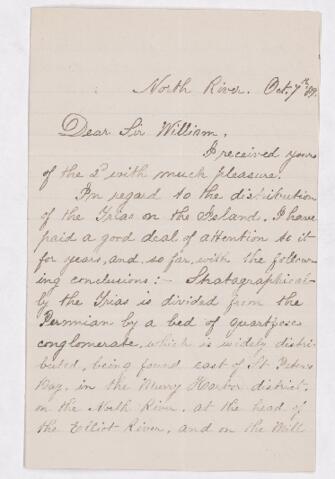 North River. Oct. 7th 89.
Dear Sir William,
I received yours
of the 2d with much pleasure.
In regard to the distribution
of the Trias on the Island, I have
paid a good deal of attention to it
for years, and, so far, with the follow-
ing conclusions:- Stratagraphical-
ly the Trias is divided from the
Permian by a bed of quartzose
conglomerate, which is widely distri-
buted, being found east of St. Peters
Bay, in the Murry Harbor district,
on the North River, at the head of
the Elliot River, and on the Mill